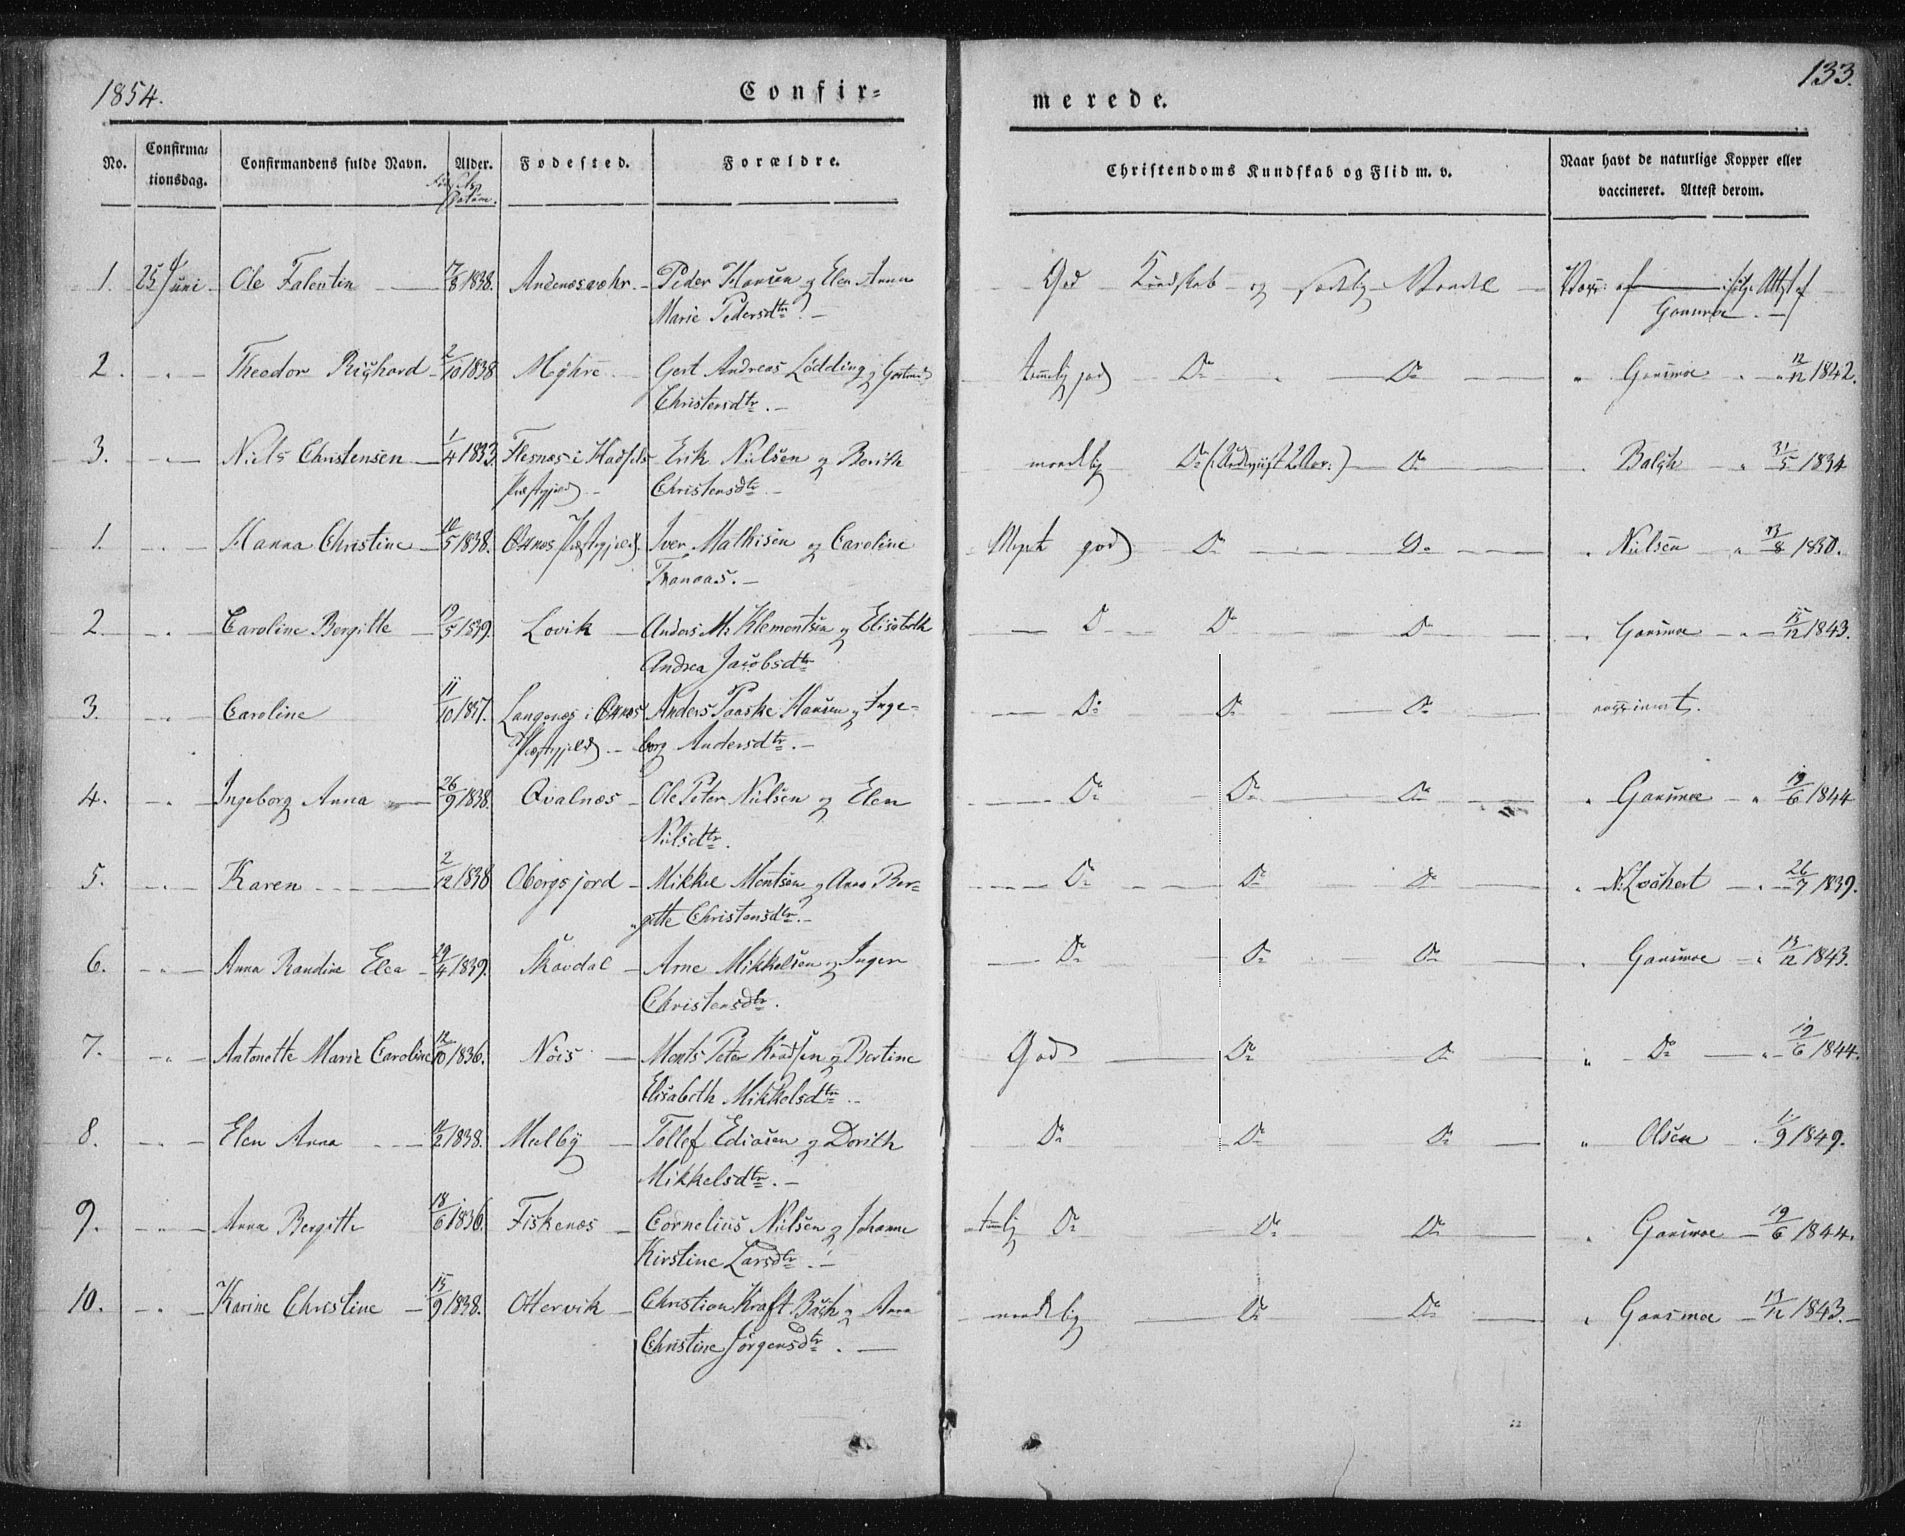 1854.
Confir-
merede.
133.
No.
Confirma-
tionsdag.
Confirmandens fulde Navn.
Alder.
Fødested.
Forældre.
Christendoms Kundskab og Flid m. v.
Naar havt de naturlige Kopper eller
vaccineret. Attest derom.
1. 25 Juni Ole Falentin 1838. Andenæsvæhr. Peder Hansen og Elen Anna God Kundskab og Vandel
Marie Pedersdtr. Gaarmoe.
2. " Theodor Righard 2/10 1838 Myhre Gert Andreas Lødding og temelig god Do Do " Gaarmoe " 12/12 1842.
Christensdtr.
3. " Niels Christensen 1/4 1833. Flesnæs i Hadsels Erik Nielsen og Berith maadelig Do Do " Balgh " 31/5 1834
Præstegjeld Christensdtr.
1. " Hanna Christine 1838. Øxnæs Præstegjeld. Iver Mathisen og Caroline Meget god Do Do " Nielsen " 1850.
Tranaas.
2. " Caroline Bergitte 1839. Lovik Anders M: Klementsen og Elisabeth Do Do Do " Gaarmoe " 15/12 1843.
Andrea Jacobsdtr
3. " Caroline 11/10 1837. Langenæs i Øxnæs Anders Paaske Hansen og Inge- Do Do Do vaccineret.
Præstegjeld borg Andersdtr.
4. " Ingeborg Anna 26/9 1838. Qvalnæs Ole Peter Nielsen og Elen Do Do Do " Gaarmoe " 19/6 1844
Nilsdtr.
5. " Karen 2/12 1838 Obergsjord Mikkel Montsen og Anna Ber- Do Do Do " N: " 26/7 1839.
gitte Christensdtr.
6. " Anna Randine Elea 29/4 1839. Skavdal Arne Mikkelsen og Inger Do Do Do " Gaarmoe " 13/12 1843.
Christensdtr.
7. " Antonette Marie Caroline 12/10 1836. Nøis Monts Peter Knudsen og Bertine God Do Do " Do " 19/6 1844.
Elisabeth Mikkelsdtr.
8. " Elen Anna 1838. Meelby Tollef Ediasen og Dorith Do Do Do " Olsen 1849.
Mikkelsdtr.
9. " Anna Bergitte 18/6 1836. Fiskenæs Cornelius Nielsen og Johanne temlig Do Do Do " Gaarmoe 19/6 1844.
Kirstine Larsdtr.
10. " Karine Christine 1838. Ottervik Christian Kraft Bach og Anna maadelig Do Do " Gaarmoe 13/12 1843.
Christine Jørgensdtr.